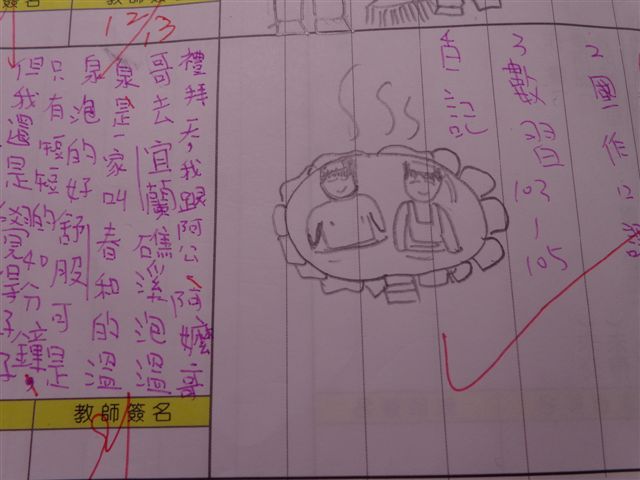 簽名
教師簽名
12/13
2 國作
3 數習 103~105
4 日記
禮拜天,我跟阿公、阿嬤、哥
哥去宜蘭礁溪泡溫
泉是一家叫春和的溫
泉泡的好舒服可是
只有短短的40分鐘
但我還是覺得
教師簽名